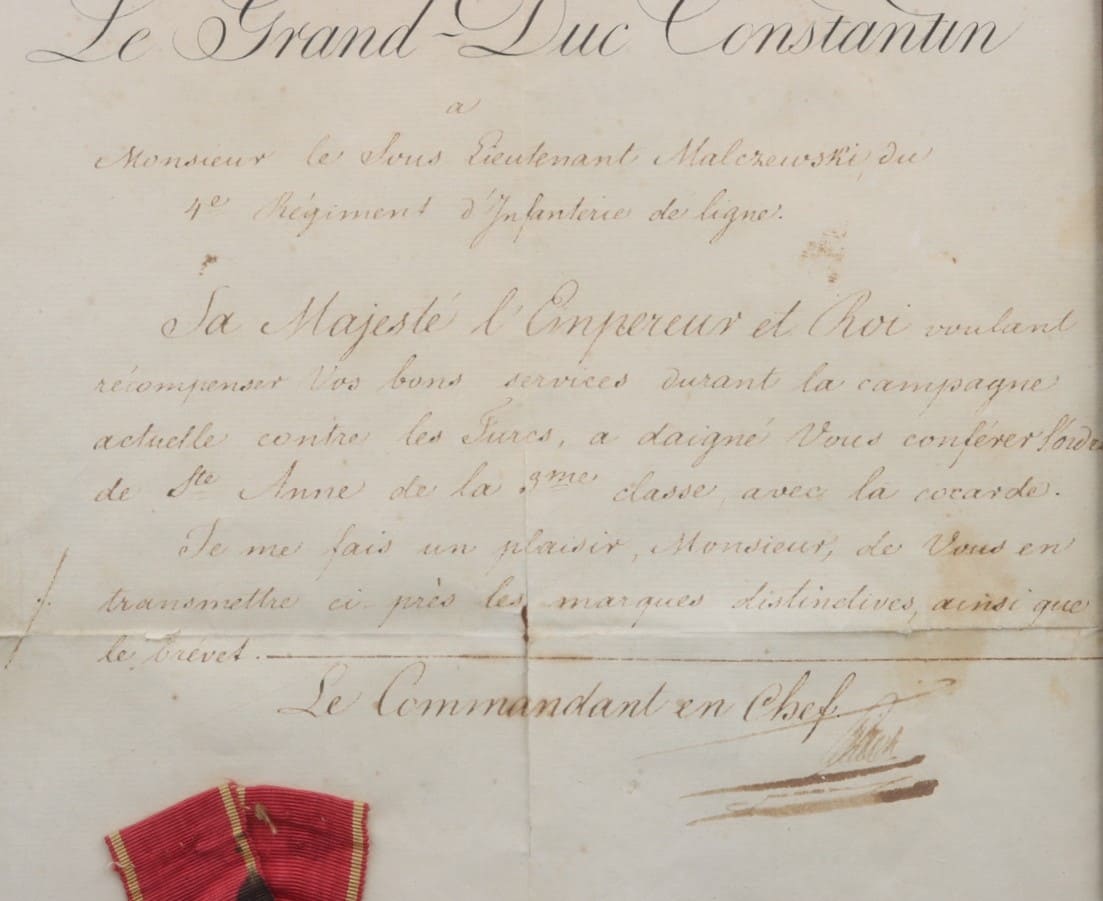 Le Grand-Duc Constantin
a
Monsieur le Sous Lieutenant Malczewski, du
4e Régiment d'Infanterie de ligne.
Sa Majesté l'Empereur et Roi voulant
récompenser Vos bons services durant la campagne
actuelle contre les Turcs, a daigné Vous conférer l'ordre
de Ste Anne de la 3me classe, avec la cocarde.
Je me fais un plaisir, Monsieur, de Vous en
transmettre ci-près les marques distinctives, ainsi que
le brévet.
Le Commandant en Chef.